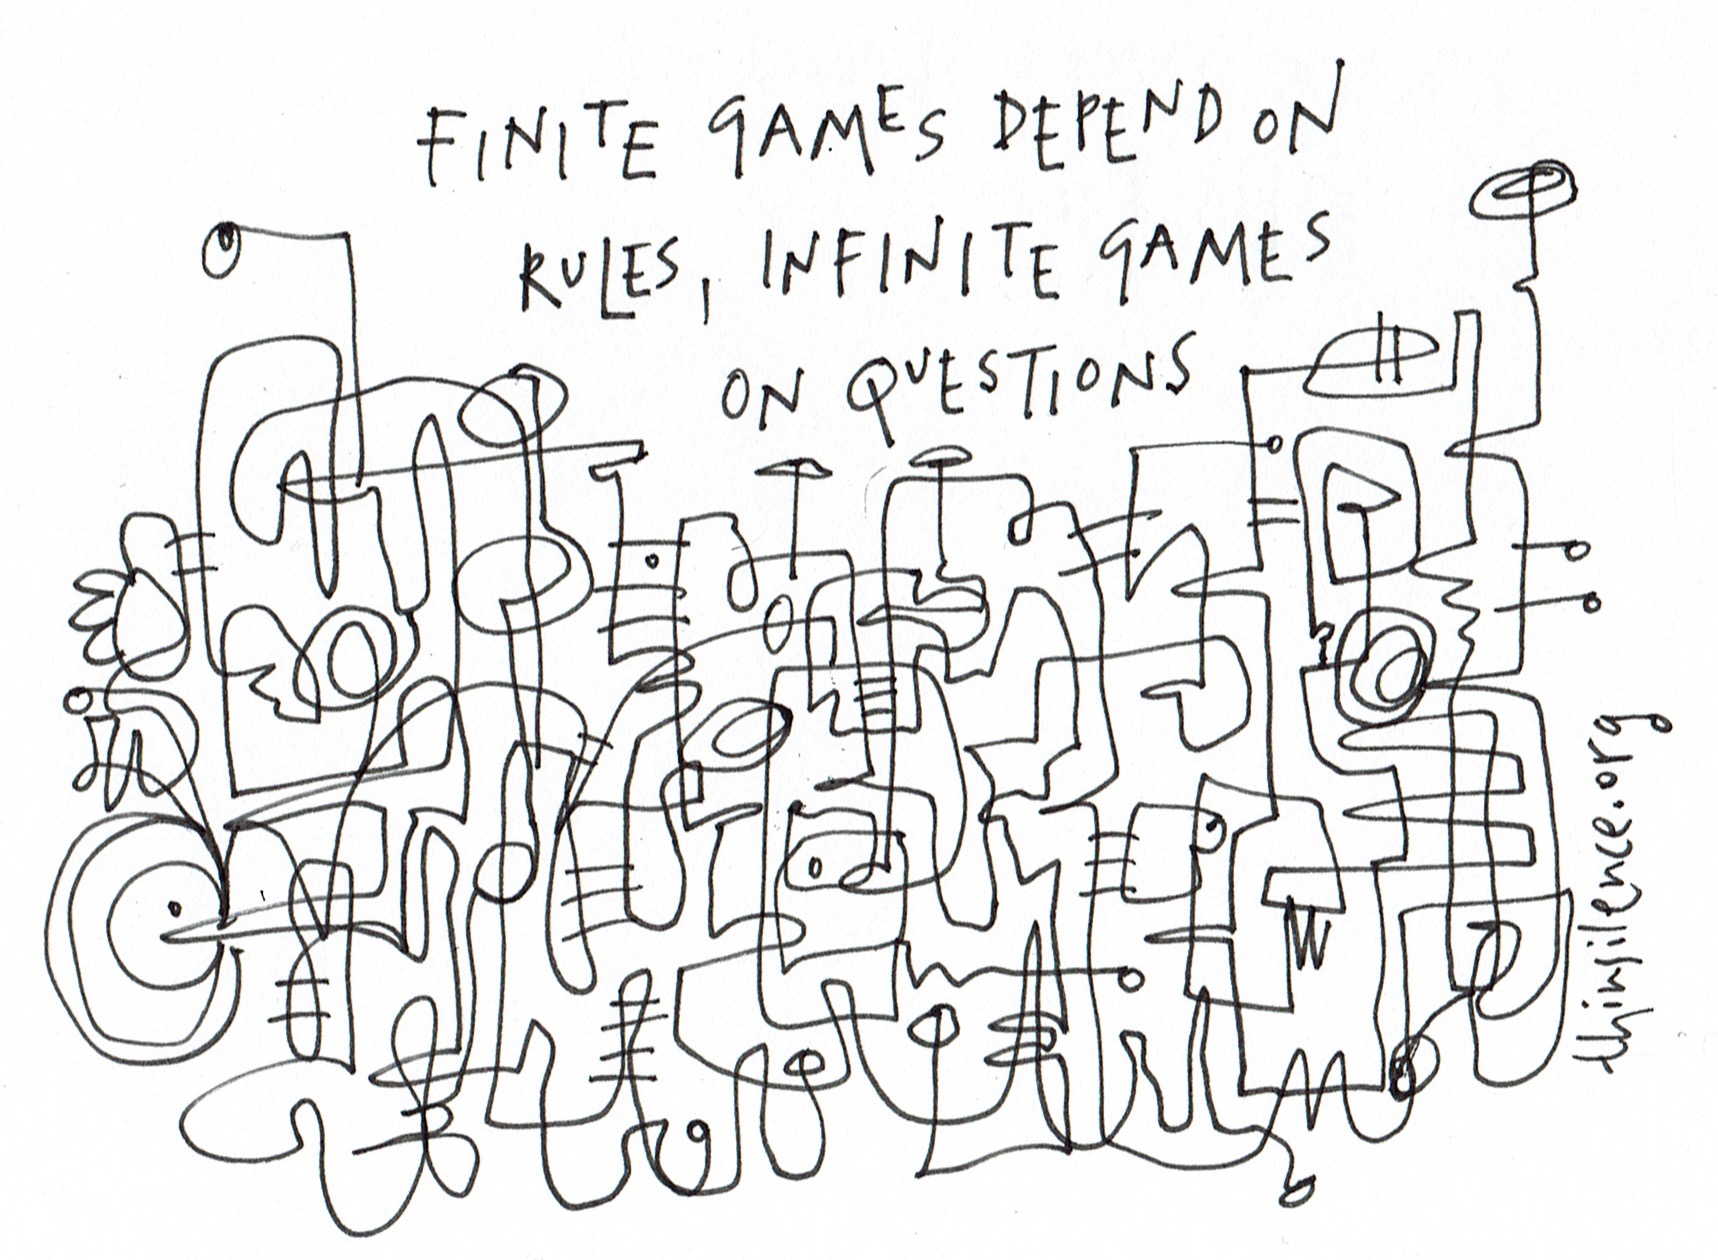 FINITE GAMES DEPEND ON
RULES, INFINITE GAMES
ON QUESTIONS
thinsilence.org